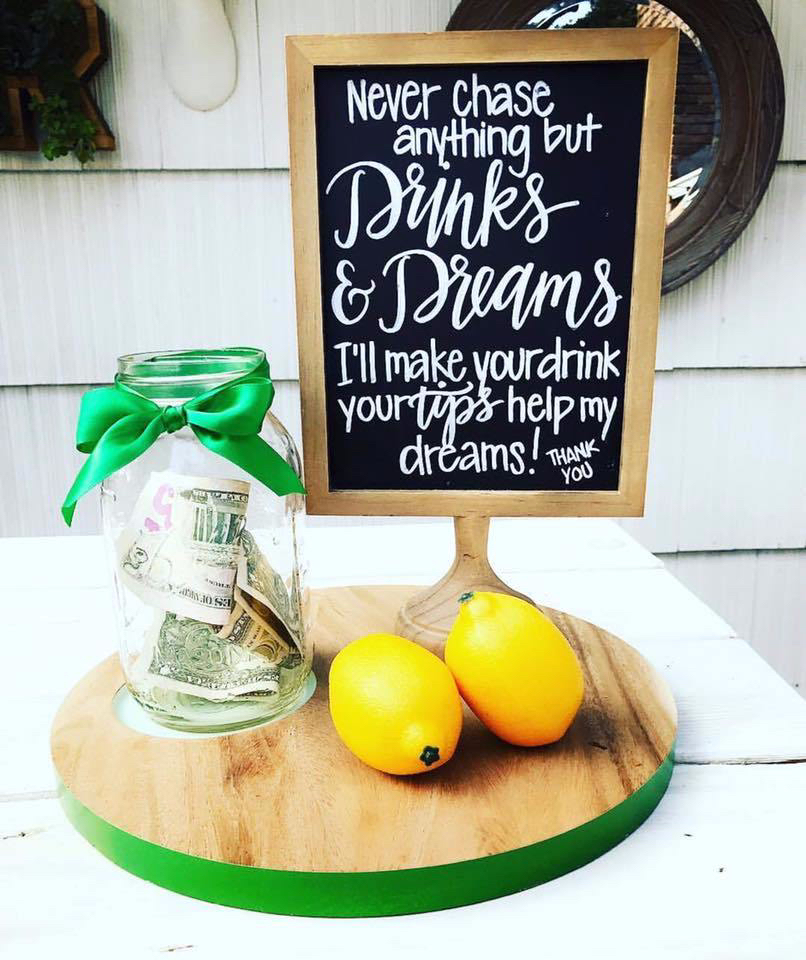 Never chase
anything but
Drinks
& Dreams
I'll make your drink
your tips help my
dreams! THANK
YOU
5